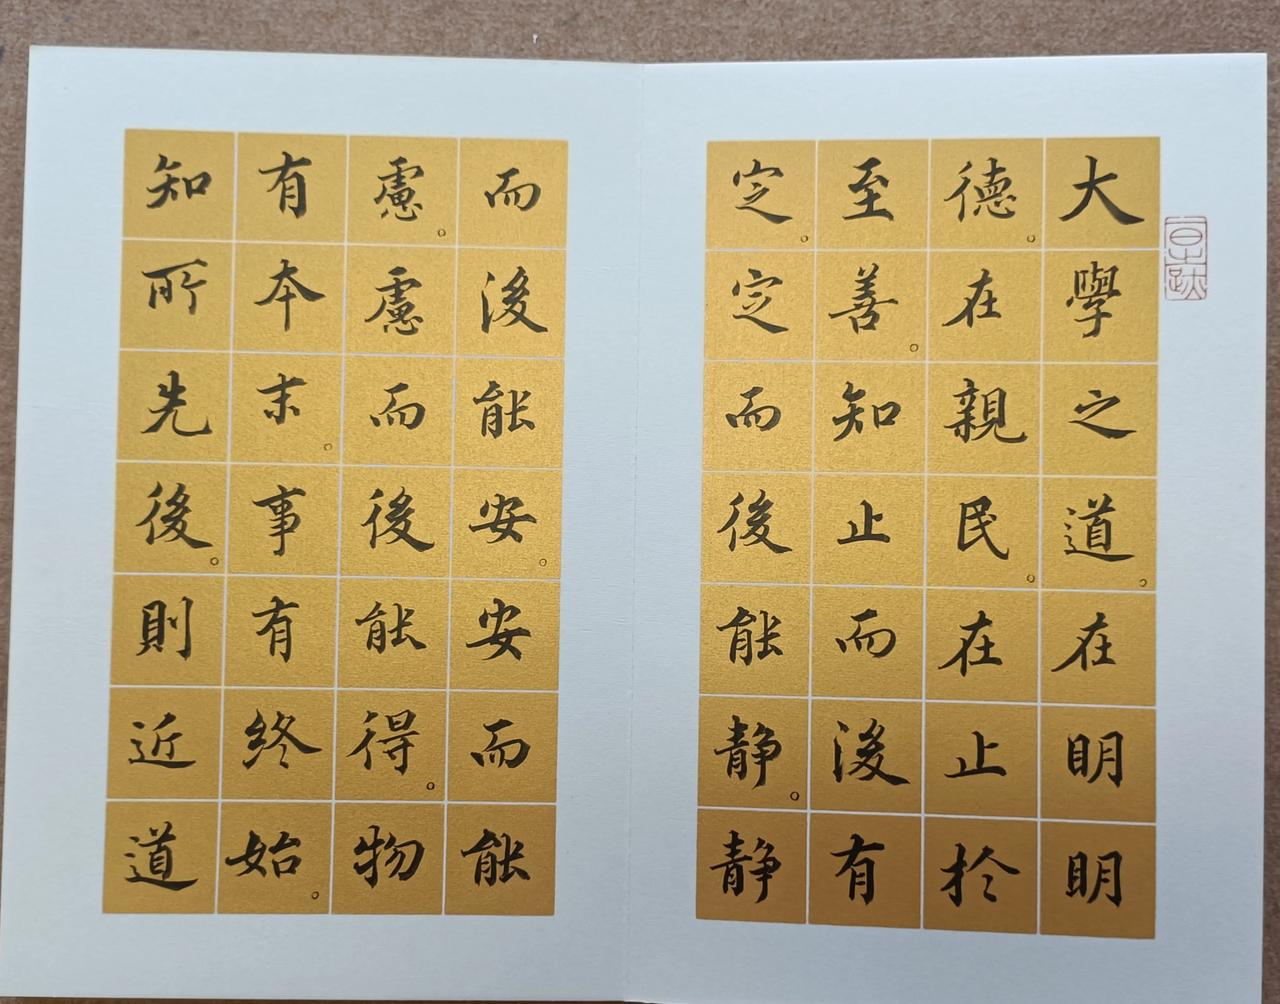 大學之道。在明明
德。在親民。在止於
至善。知止而後有
定。定而後能静。静
而後能安。安而能
慮。慮而後能得。物
有本末。事有終始。
知所先後。則近道